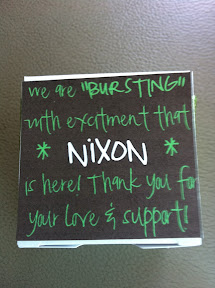 we are "BURSTING"
with excitment that
* NiXON *
is here! Thank you for
your love & support!